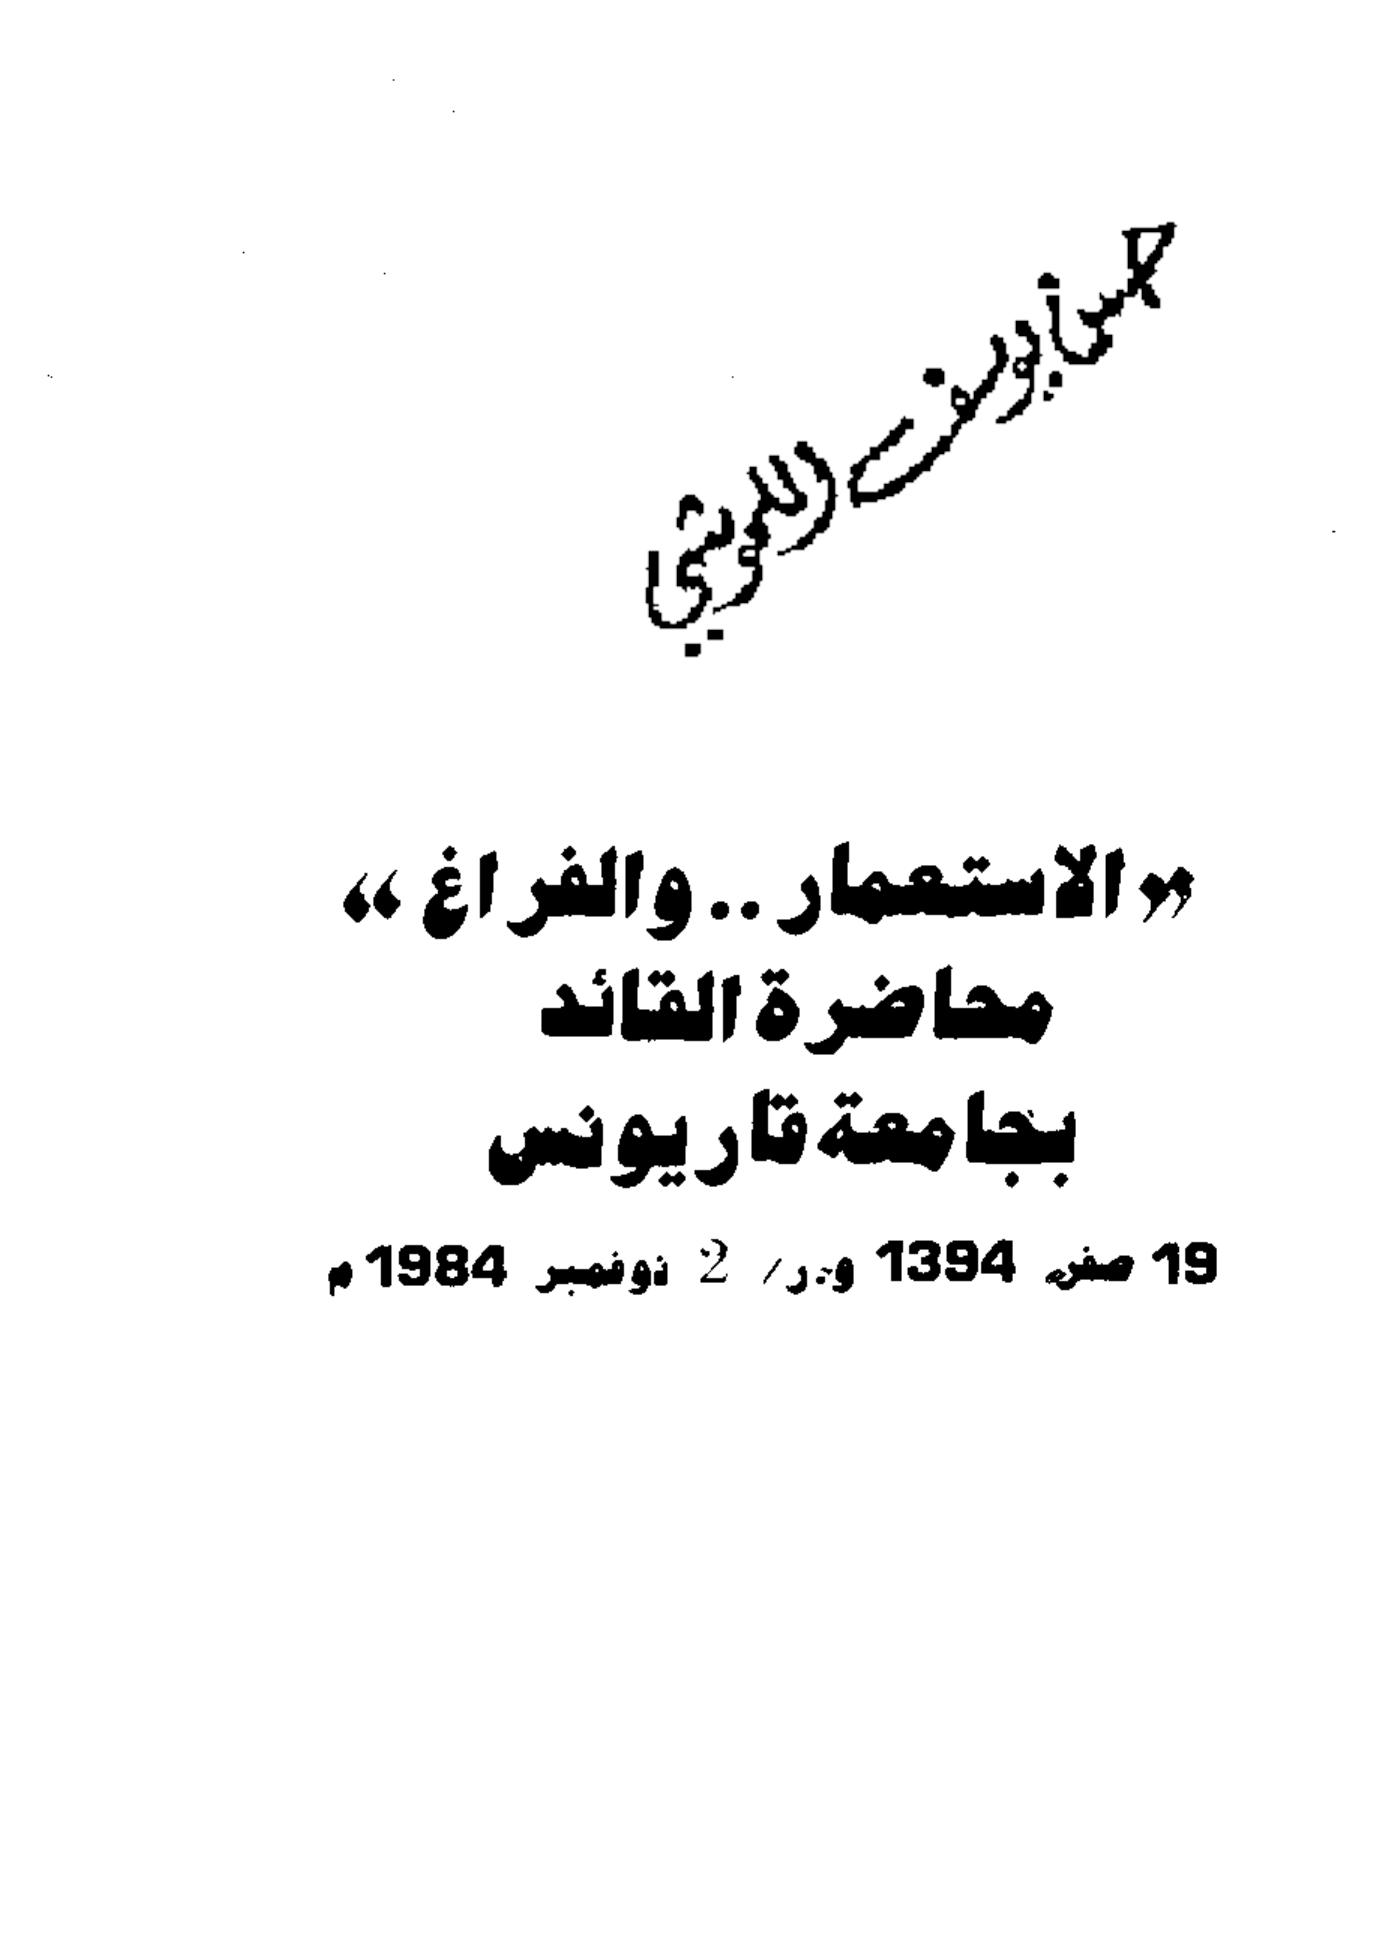 يوسف
«الاستعمار .. والفراغ»
محاضرة القائد
بجامعة قاريونس
19 صفر 1394 و.ر/ 2 نوفمبر 1984 م